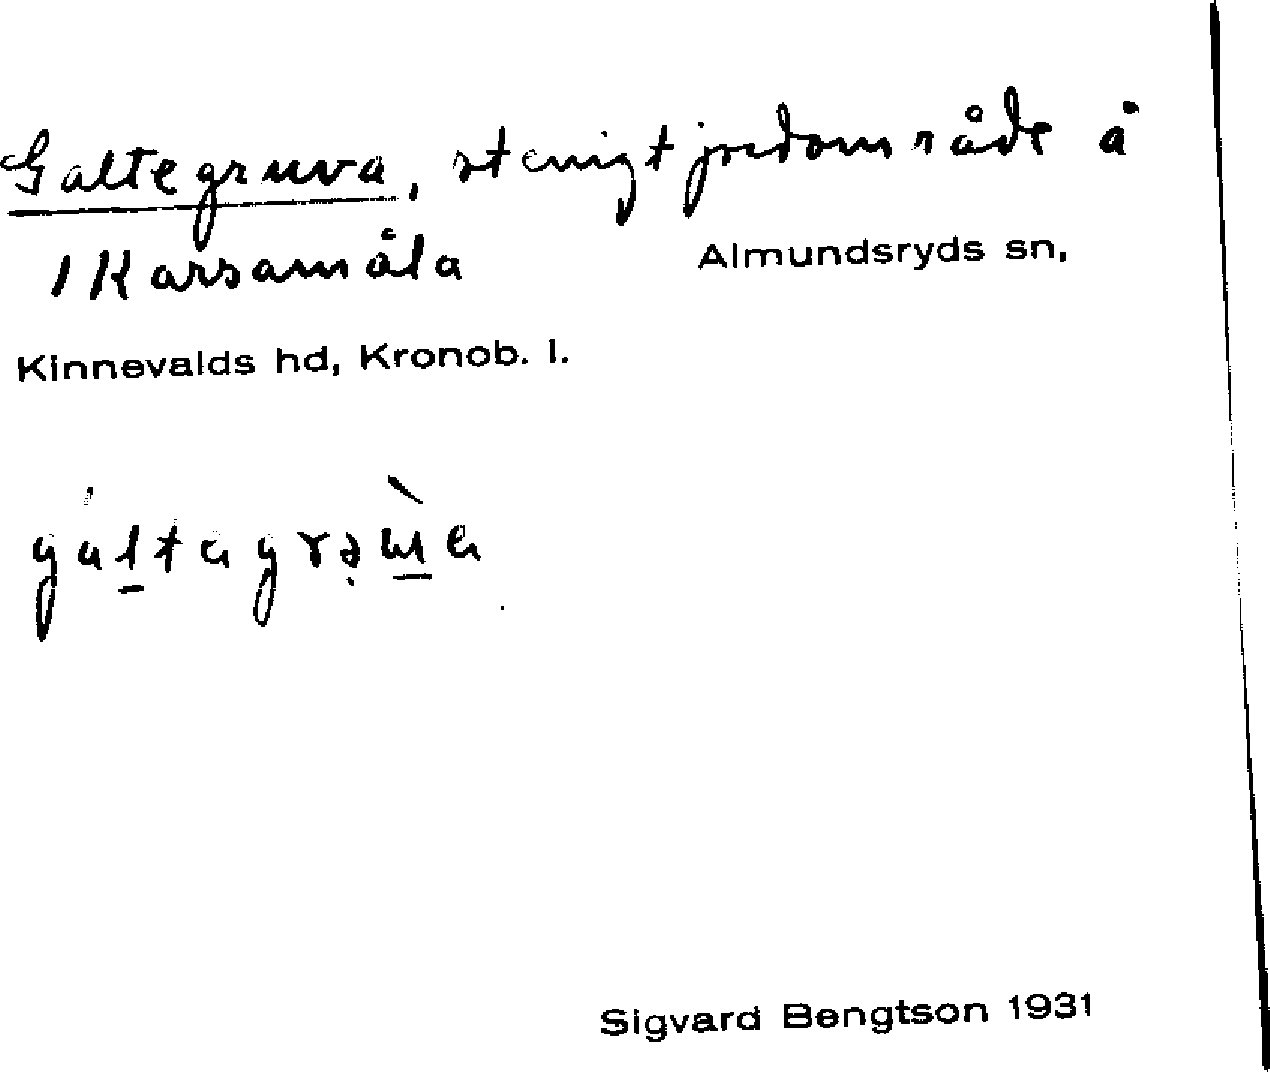 Galtegruva, stenigt jordområde å
1 Karsamåla Almundsryds sn,
Kinnevalds hd, Kronob. l.
Sigvard Bengtson 1931